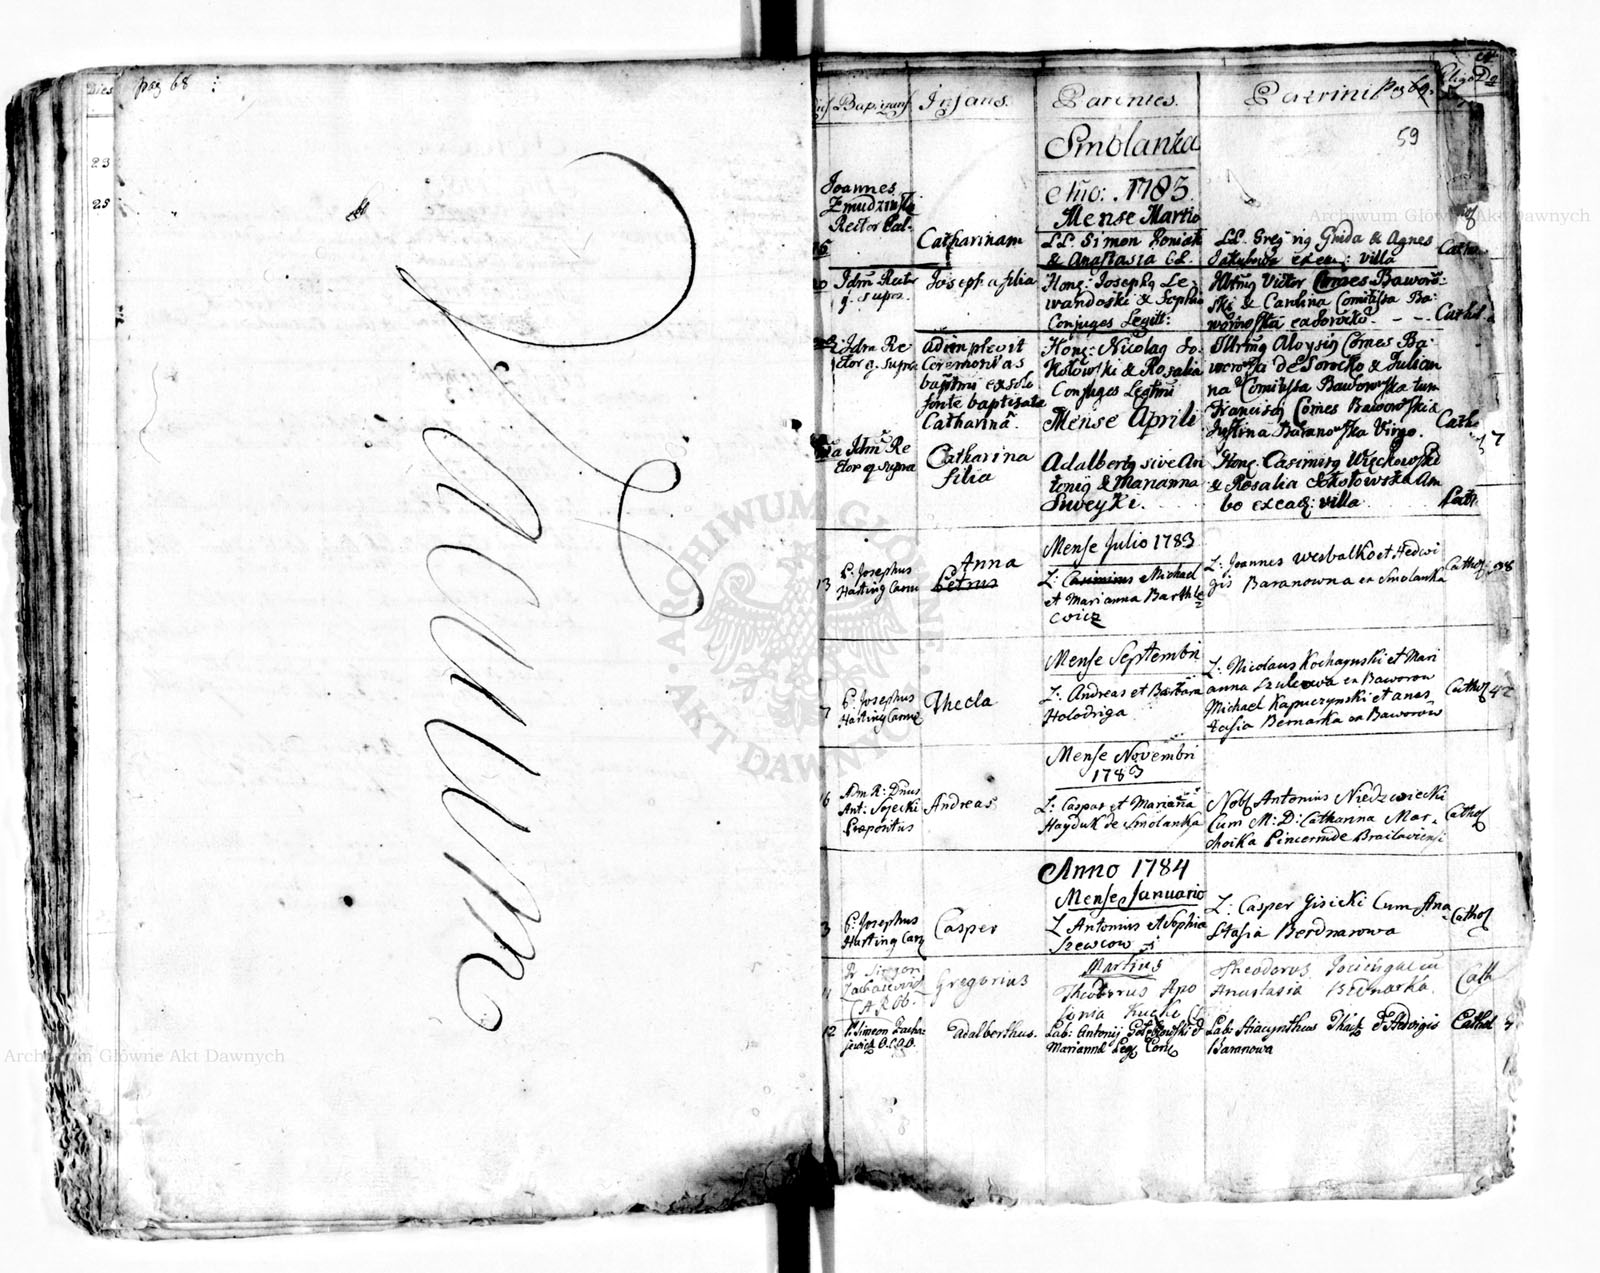 Dies
pag 68
23
25
Vacuum
Infans.
Parentes.
Patrini
Pag 69.
59
Smolanka
Año: 1783
Mense Martio
Joannes
Żmudzinski
Rector Cal-
Catharinam
LL. Simon
& Anastasia CL.
LL. Greg rig Ghida & Agnes
ex ea: villa
Cath
Idm Rector
q. supra
Josepha filia
Hong: Josephg Le-
wandoski & Sophia
Conjuges Legitt:
Illtrmg Victor Comes Baworo-
ski & Carolina Comitissa Ba-
worowska ex Sorocko
Cathol.
Idm Re
ctor q. supra
adimplevit
ceremonias
baptmi ex solo
fonte baptisata
Catharina.
Hong: Nicolag So-
kołowski & Rosalia
Conjuges Legtmi
Illtrmg Aloysig Comes Ba-
worowski de Sorocko & Julian
na Comitissa Baworowska tum
Franciscg Comes Baworowski &
Justina Baranowska Virgo.
Cath
Mense Aprili
17
Idm Re
ctor q supra
Catharina
filia
Adalbertg sive An
tonig & Marianna
Suweyki.
Hong: Casimirg Więckowski
& Rosalia Sokołowska Am
bo ex eaq: villa
Cath
Mense Julio 1783
13
P: Josephus
Harting Carm
Anna
Petrus
L: Casimirus Michael
et Marianna Barthle
cvicz
L: Joannes Wesbalko et Hedwi
gis Baranowna ex Smolanka
Cathol
38
Mense Septembri
7
P: Josephus
Harting Carme
Thecla
L: Andreas et Barbara
Holodriga
L: Nicolaus Kochaynski et Mari
anna Szulcowa ex Baworow
Michael Kapuczynski et anas
tasia Bernarka ex Baworow
Cathol
42
Mense Novembri
1783
6
Adm R: Dnus
Ant: Sojecki
Præpositus
Andreas
L: Caspar et Mariana
Hayduk de Smolanka
Nobl Antonius Niedzwiecki
Cum M: D: Catharina Mar-
choika Pincernide Braclaviensi
Cathol
Anno 1784
Mense Januario
3
P: Josephus
Harting Car
Casper
L Antonius et Sophia
Szewcow
L: Casper Gisicki Cum Ana
stasia Berdnarowa
Cathol
Martius
11
Gregorius
Theodorus Apo
lonia Kucke
Theodorus
Anastasia Bednarka.
Cath
12
P. Simeon Zacha-
jewicz
Adalberthus.
Lab: Antonij Gołębiowski &
Marianna Leg Conj
Lab: Hiacynthus Tkacz & Hedvigis
Baranowa
Cathol
Archiwum Główne Akt Dawnych
Archiwum Główne Akt Dawnych
ARCHIWUM GŁÓWNE
AKT DAWNYCH